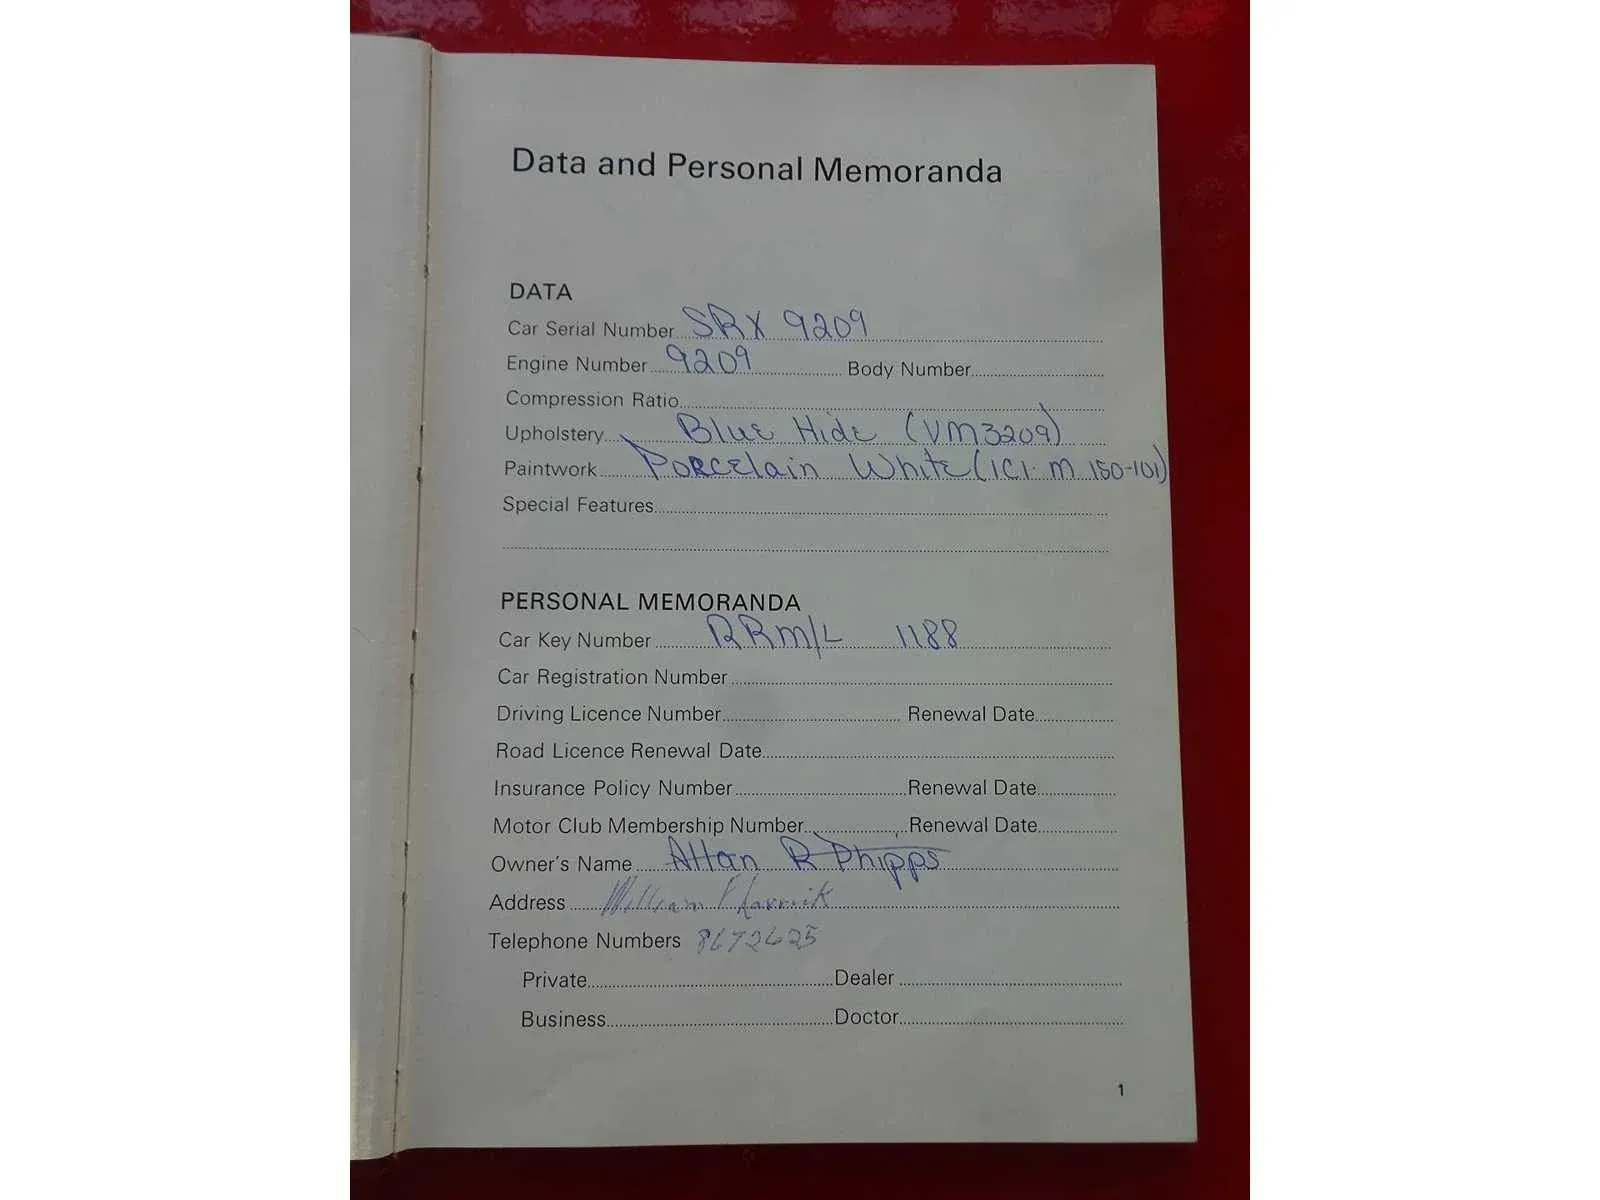 Data and Personal Memoranda
DATA
Car Serial Number SRX 9209
Engine Number 9209 Body Number
Compression Ratio
Upholstery Blue Hide (VM3209)
Paintwork Porcelain White (ICI M 150-101)
Special Features
PERSONAL MEMORANDA
Car Key Number RRM/L 1188
Car Registration Number
Driving Licence Number Renewal Date
Road Licence Renewal Date
Insurance Policy Number Renewal Date
Motor Club Membership Number Renewal Date
Owner's Name Allan R Phipps
Address William
Telephone Numbers 8672625
Private Dealer
Business Doctor
1